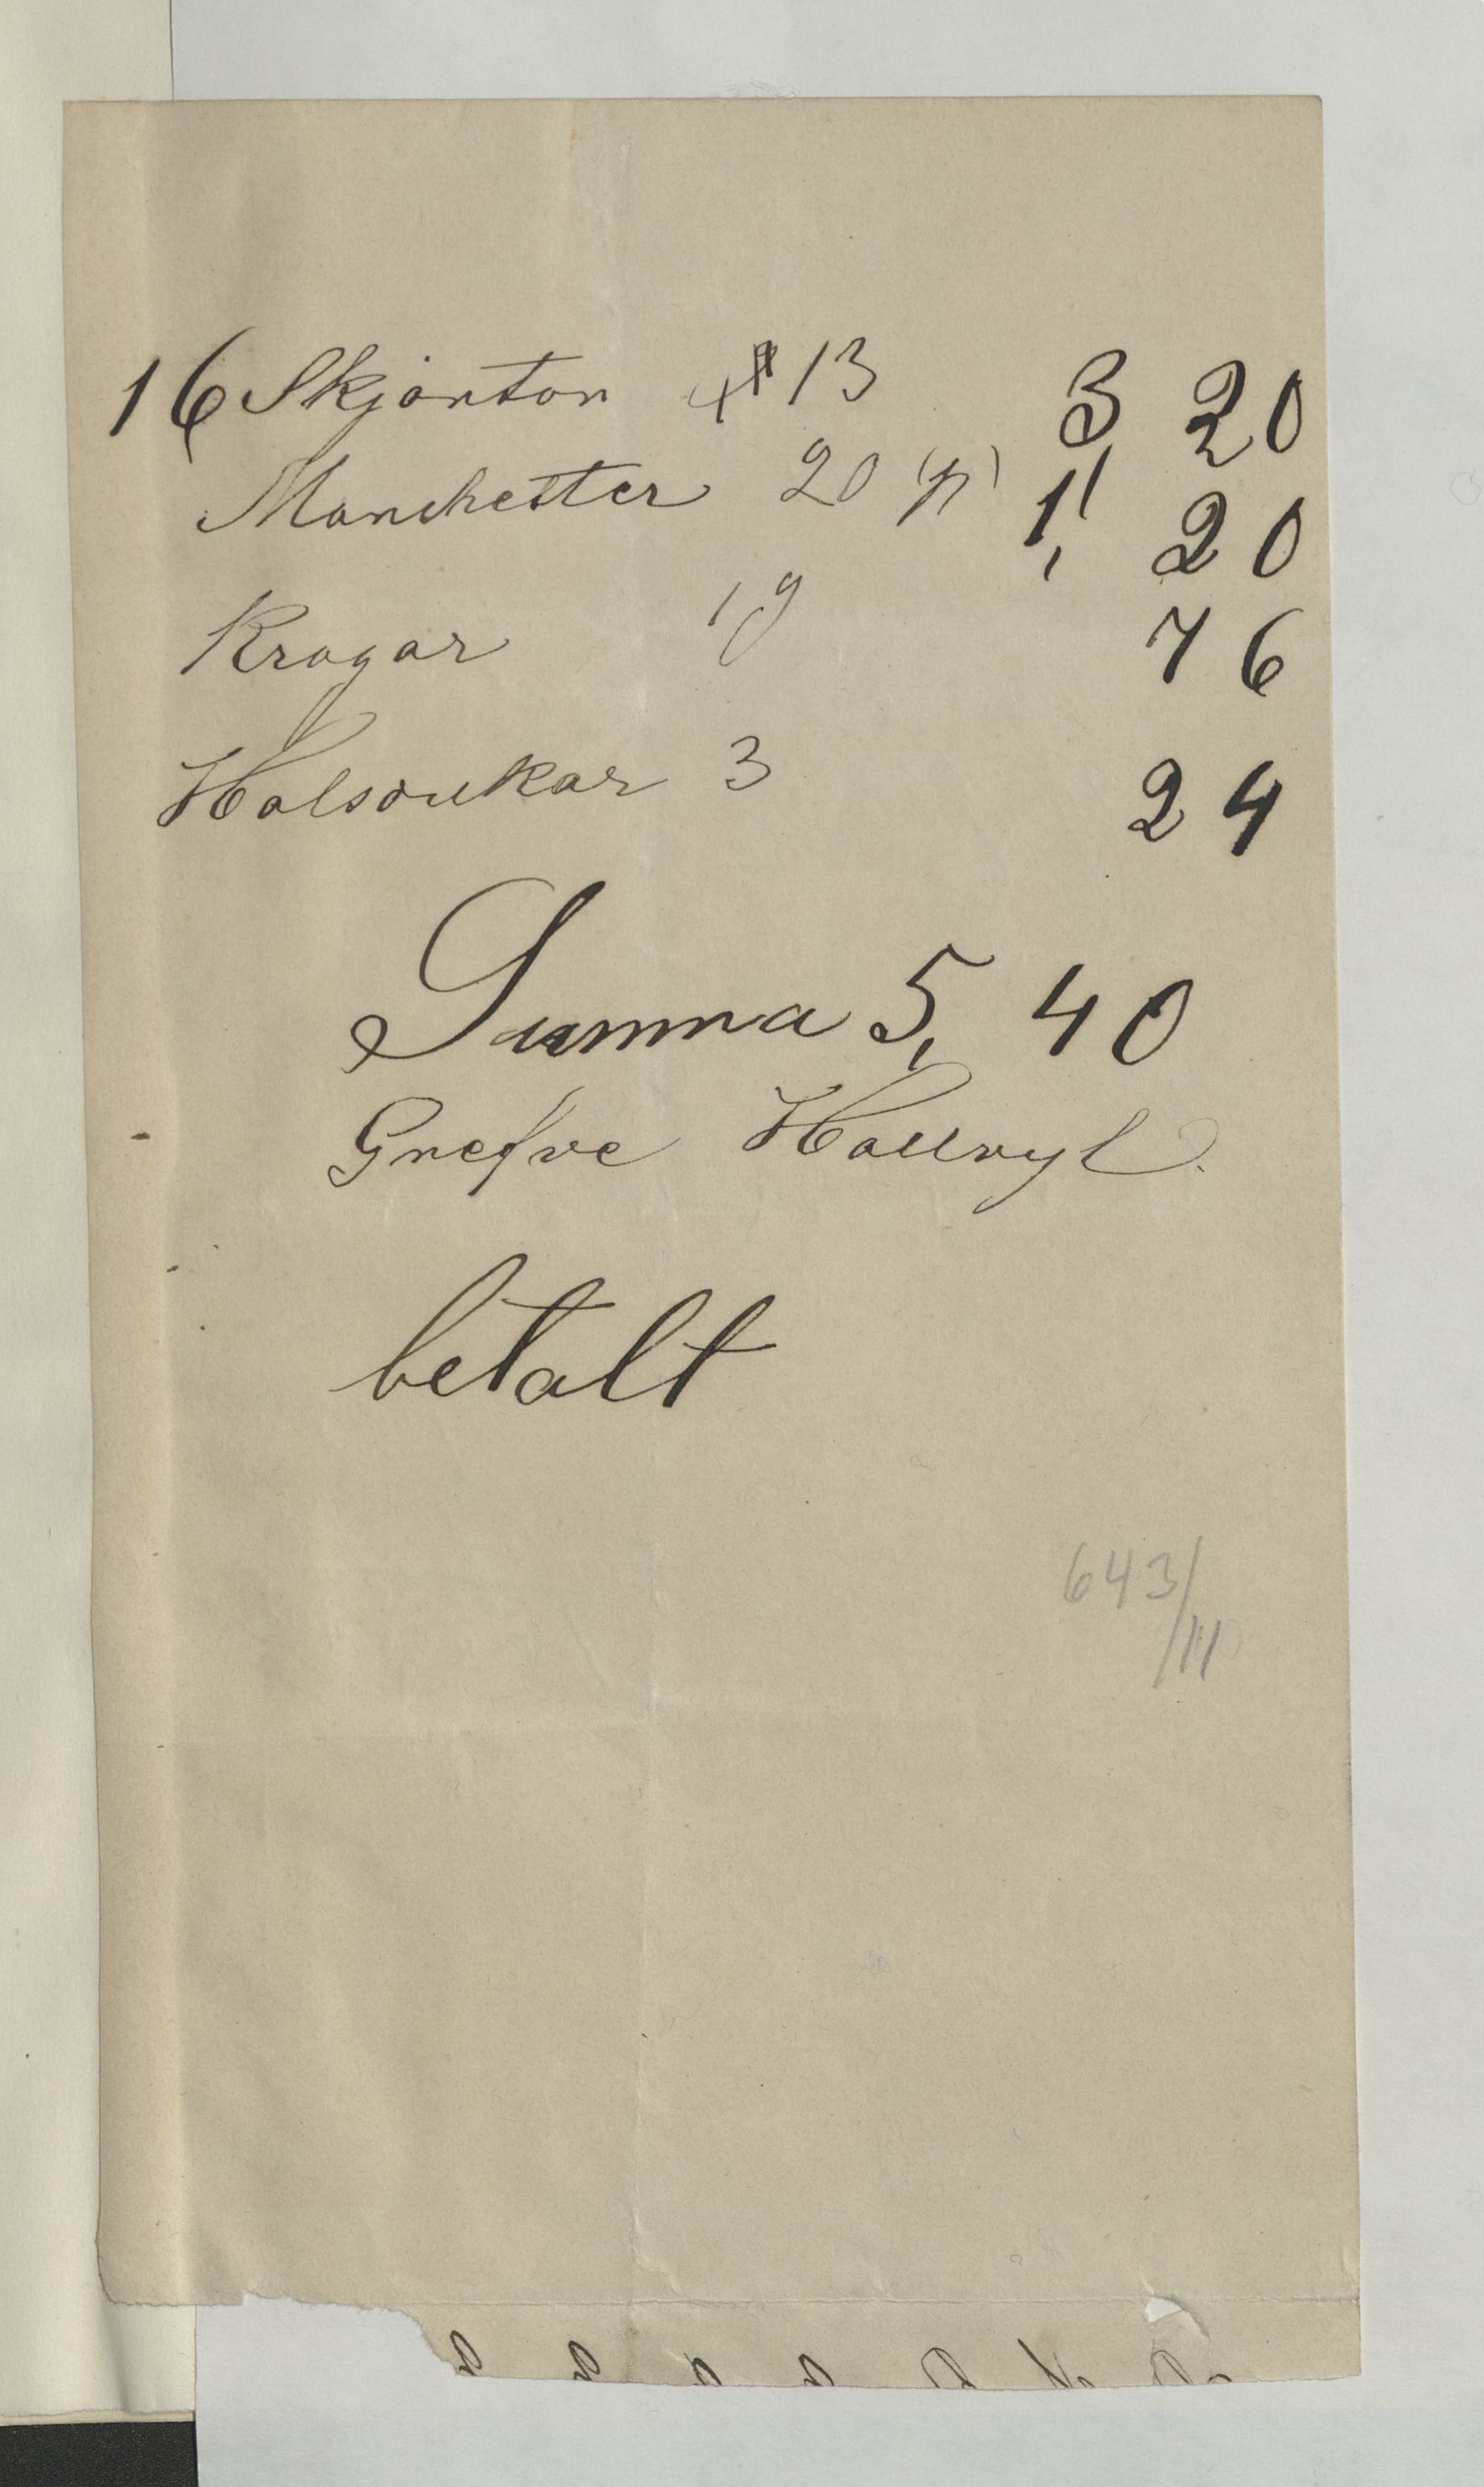 16 Skjortor 13 3, 20
Manchetter 20 (p) 1, 20
Kragar 19 76
Halsdukar 3 24
Summa 5, 40
Grefve Hallvyl.
betalt
643/